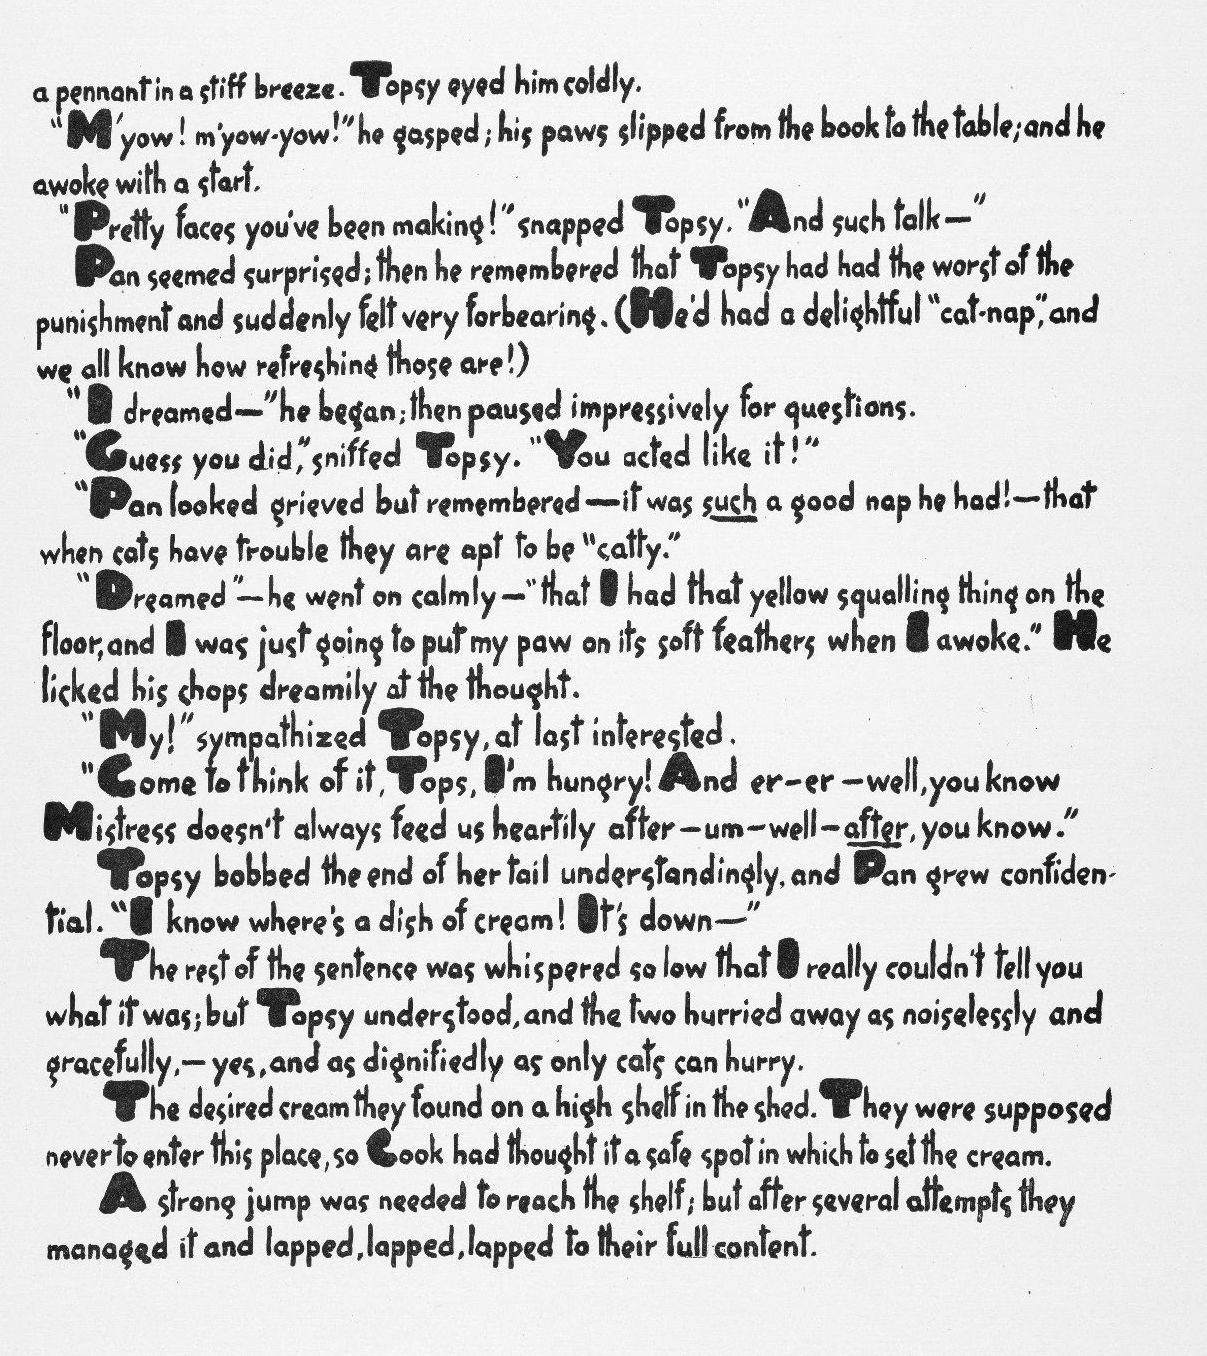 a pennant in a stiff breeze. Topsy eyed him coldly.
"M'yow! m'yow-yow!" he gasped; his paws slipped from the book to the table; and he
awoke with a start.
"Pretty faces you've been making!" snapped Topsy. "And such talk—"
Pan seemed surprised; then he remembered that Topsy had had the worst of the
punishment and suddenly felt very forbearing. (He'd had a delightful "cat-nap", and
we all know how refreshing those are!)
"I dreamed—" he began; then paused impressively for questions.
"Guess you did," sniffed Topsy. "You acted like it!"
"Pan looked grieved but remembered—it was such a good nap he had!—that
when cats have trouble they are apt to be "catty."
"Dreamed"—he went on calmly—"that I had that yellow squalling thing on the
floor, and I was just going to put my paw on its soft feathers when I awoke." He
licked his chops dreamily at the thought.
"My!" sympathized Topsy, at last interested.
"Come to think of it, Tops, I'm hungry! And er-er—well, you know
Mistress doesn't always feed us heartily after—um—well—after, you know."
Topsy bobbed the end of her tail understandingly, and Pan grew confiden-
tial. "I know where's a dish of cream! It's down—"
The rest of the sentence was whispered so low that I really couldn't tell you
what it was; but Topsy understood, and the two hurried away as noiselessly and
gracefully,—yes, and as dignifiedly as only cats can hurry.
The desired cream they found on a high shelf in the shed. They were supposed
never to enter this place, so Cook had thought it a safe spot in which to set the cream.
A strong jump was needed to reach the shelf; but after several attempts they
managed it and lapped, lapped, lapped to their full content.